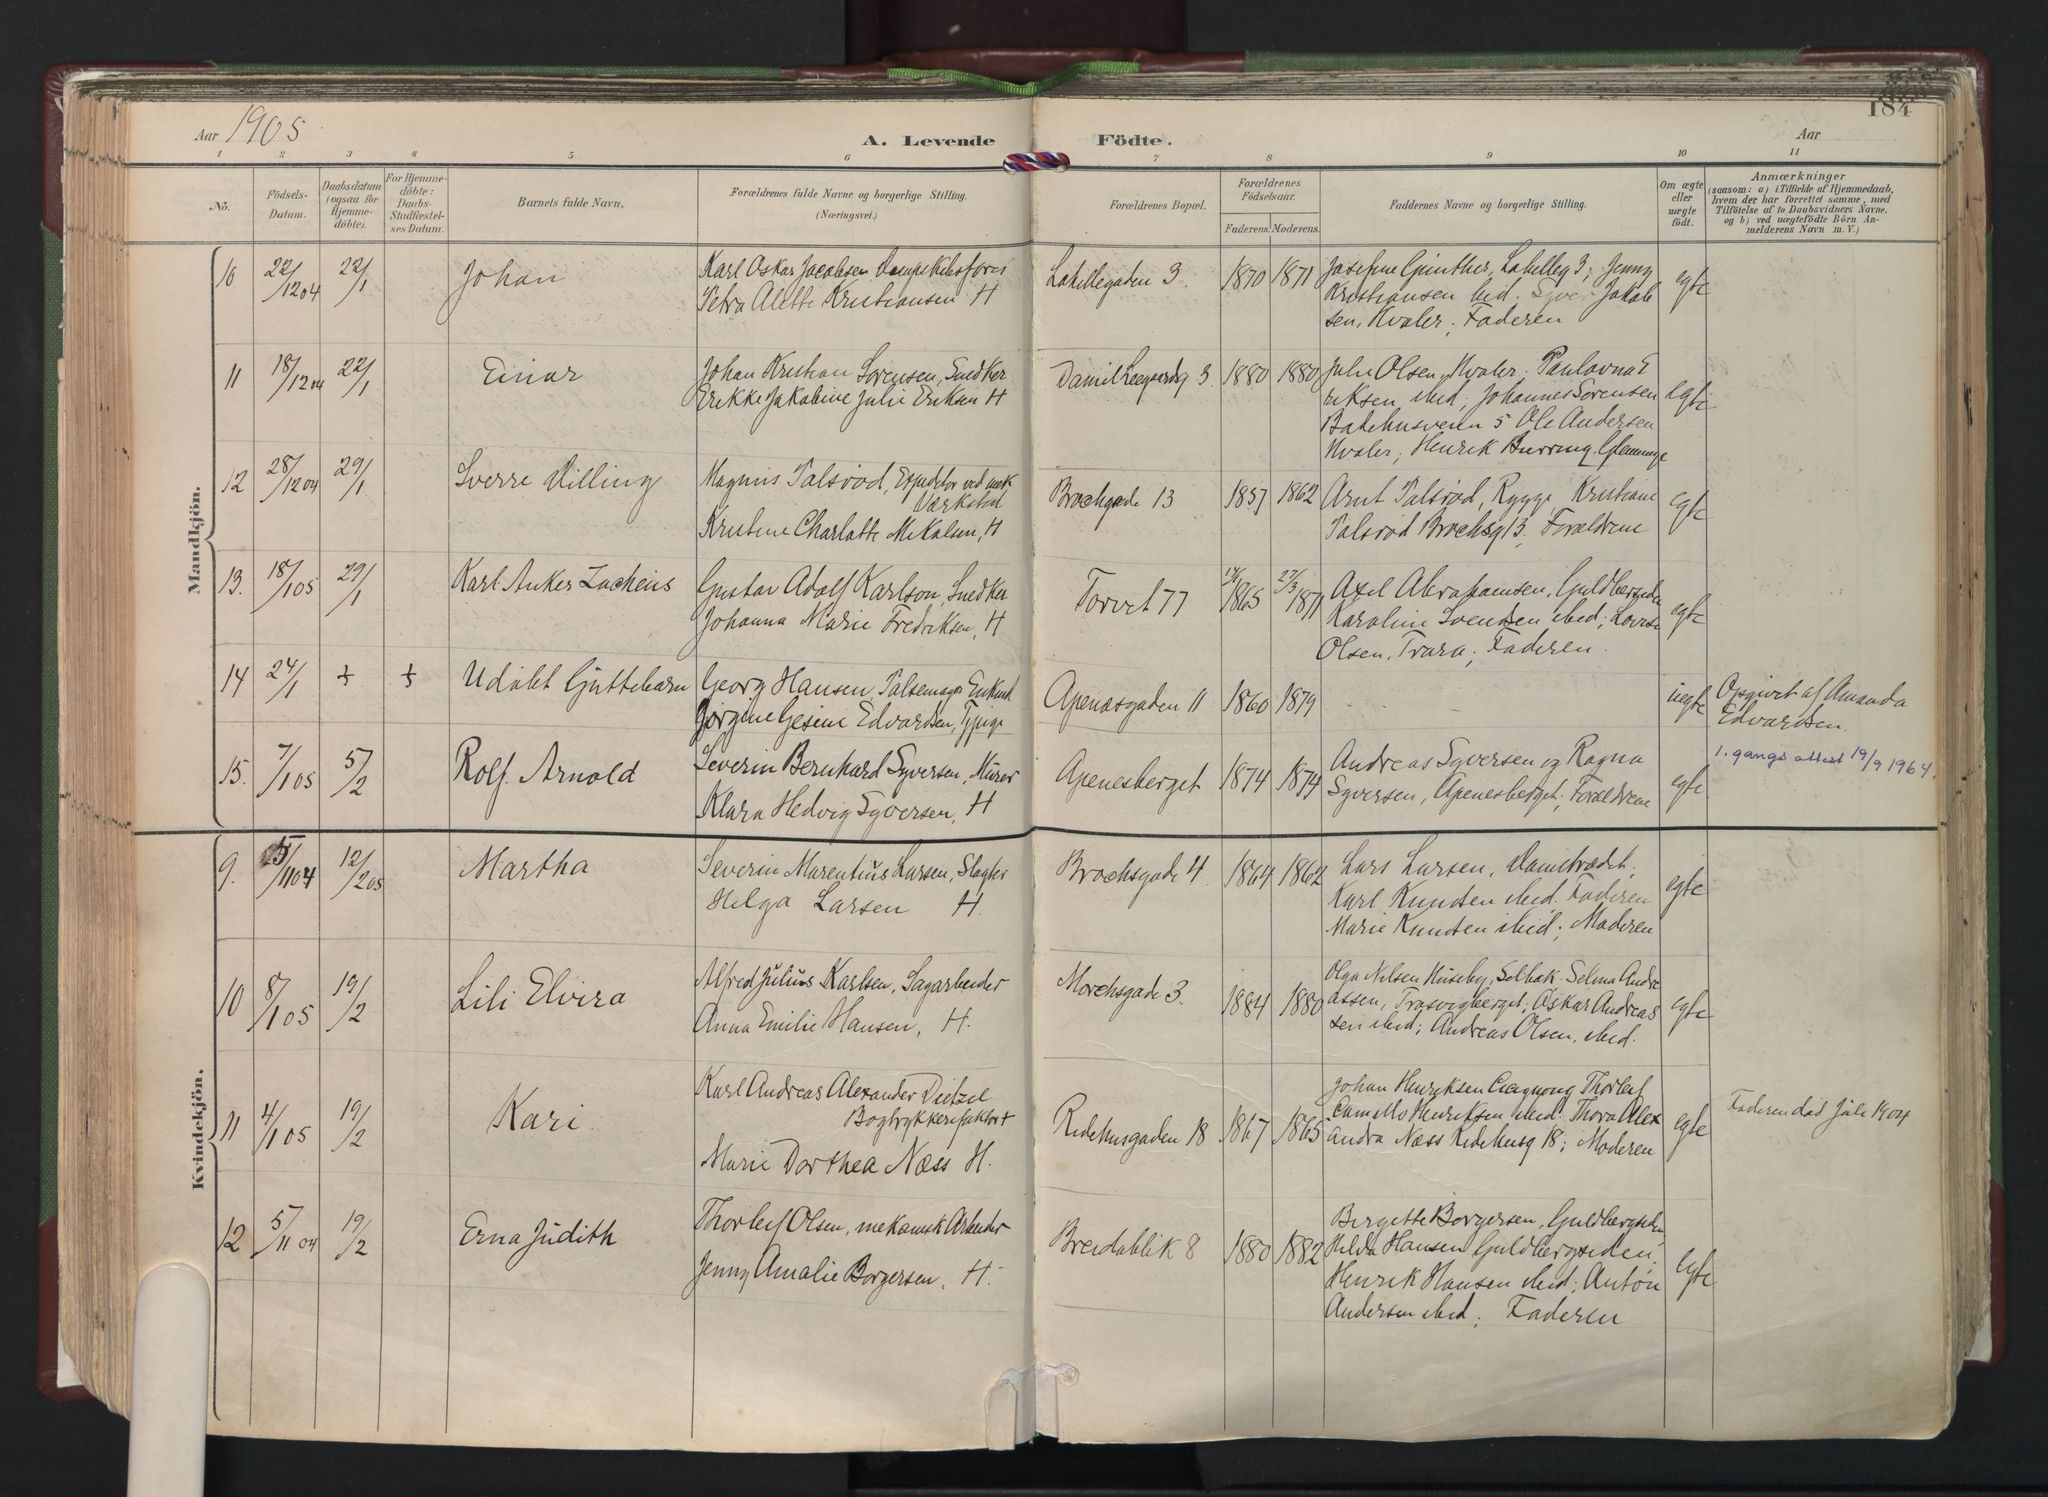 184
Aar 1905
A. Levende Födte.
Aar
1 2 3 4 5 6 7 8 9 10 11
No.
Födsels-
Datum.
Daabsdatum
(ogsaa for
Hjemme-
döbte).
For Hjemme-
döbte:
Daabs-
Stadfæstel-
ses Datum.
Barnets fulde Navn.
Forældrenes fulde Navne og borgerlige Stilling.
(Næringsvei.)
Forældrenes Bopæl.
Forældrenes
Födselsaar.
Faderens. Moderens.
Faddernes Navne og borgerlige Stilling.
Om ægte
eller
uægte
födt.
Anmærkninger
(saasom: a) i Tilfælde af Hjemmedaab,
hvem der har forrettet samme, med
Tilföielse af to Daabsvidners Navne,
og b) ved uægtefödte Börn An-
melderens Navn m. V.)
Mandkjön.
10 22/12 04 22/1 Johan
Karl Oskar Jacobsen,
Petra Alette Kristiansen H
Labellegaden 3. 1870 1871
Josefine Günther, Labelleg 3; Jenny
Kristiansen ibid. Syver Jakob
sen, Hvaler; Faderen
egte
11 18/12 04 22/1 Einar
Johan Kristian Sorensen, Snedker
Erikke Jakobine Julie Eriksen H
Daniel Leegaardsg 3. 1880 1880
Julie Olsen, Hvaler. Paulovna E
riksen ibid; Johannes Sorensen
Badehusveien 5 Ole Andersen
Hvaler; Henrik Burring. Glemminge
egte
12 28/12 04 29/1 Sverre Villing
Magnus Talsrød, Expeditor ved mek
Værksted
Kristine Charlotte Mikalsen, H
Brochsgade 13 1857 1862
Arnt Talsrød, Rygge, Kristiane
Talsrød Brochsg 13, Forældrene
egte
13. 18/1 05 29/1 Karl Anker Zacheus
Gustav Adolf Karlson, Snedker
Johanna Marie Fredriksen, H
Torvet 77 1865 27/3 1871
Axel Abrahamsen, Guldbergsiden
Karoline Svendsen ibid; Lovise
Olsen, Trara; Faderen.
egte
14 24/1 + + Udöbt Guttebarn
Georg Hansen, Pølsemager Enkem
Jørgine Gesine Edvardsen, Tjpige
Apenæsgaden 11 1860 1879
uegte
Opgivet af Amanda
Edvardsen.
15. 7/1 05 5/2 Rolf Arnold
Severin Bernhard Syversen, Murer
Klara Hedvig Syversen, H
Apenesberget 1874 1874
Andreas Syversen og Ragna
Syversen, Apenesberget; Forældrene
egte
1. gangs attest 19/9 1964.
Kvindekjön.
9. 5/11 04 12/2 05 Martha
Severin Marentius Larsen, Slagter
Helga Larsen H.
Brochsgade 4. 1864 1862
Lars Larsen, Damstrædet;
Karl Knudsen ibid. Faderen
Marie Knudsen ibid; Moderen
egte
10 8/1 05 19/2 Lili Elvira
Alfred Julius Karlsen, Sagarbeider
Anna Emilie Hansen, H.
Morchsgade 3. 1884 1880
Olga Nilsen Huseby, Selbak; Selma Andre
assen, Trosvigberget; Oskar Andreas
sen ibid; Andreas Olsen, ibid.
egte
11 4/1 05 19/2 Kari
Karl Andreas Alexander Dietzel
Bogtrykkerifaktor +
Marie Dorthea Næss H.
Ridehusgaden 18 1867 1865
Johan Henriksen Thorleif
Camillo Henriksen ibid. Thora Alex
andra Næss Ridehusg 18; Moderen
egte
Faderen död Juli 1904
12 5/11 04 19/2 Erna Judith
Thorleif Olsen, mekanisk Arbeider
Jenny Amalie Borgersen, H.
Breidablik 8 1880 1882
Birgette Borgersen, Guldbergsiden
Hilda Hansen Guldbergsiden;
Henrik Hansen ibid; Anton
Andersen ibid; Faderen
egte